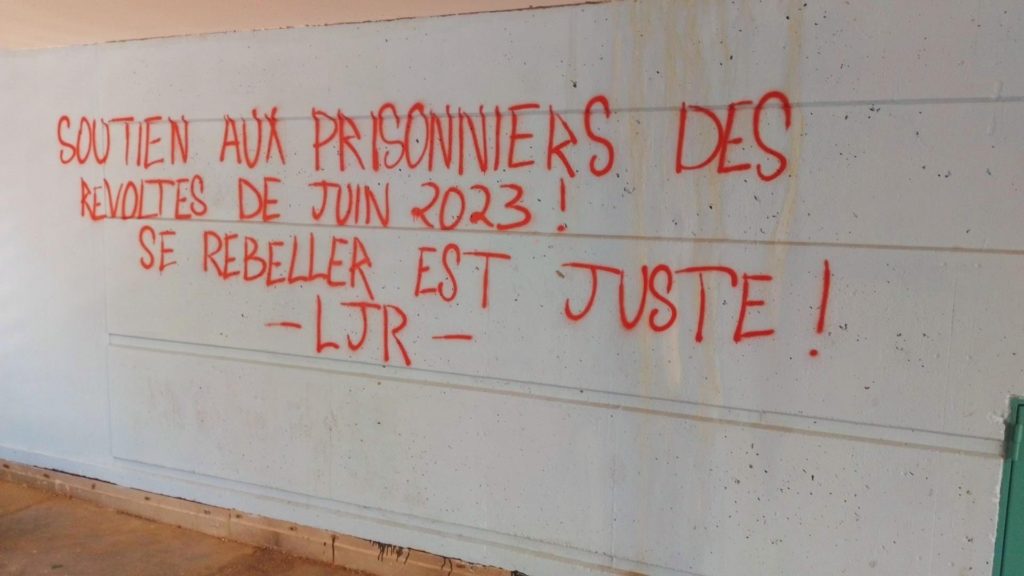 SOUTIEN AUX PRISONNIERS DES
REVOLTES DE JUIN 2023 !
SE REBELLER EST JUSTE !
- LJR -